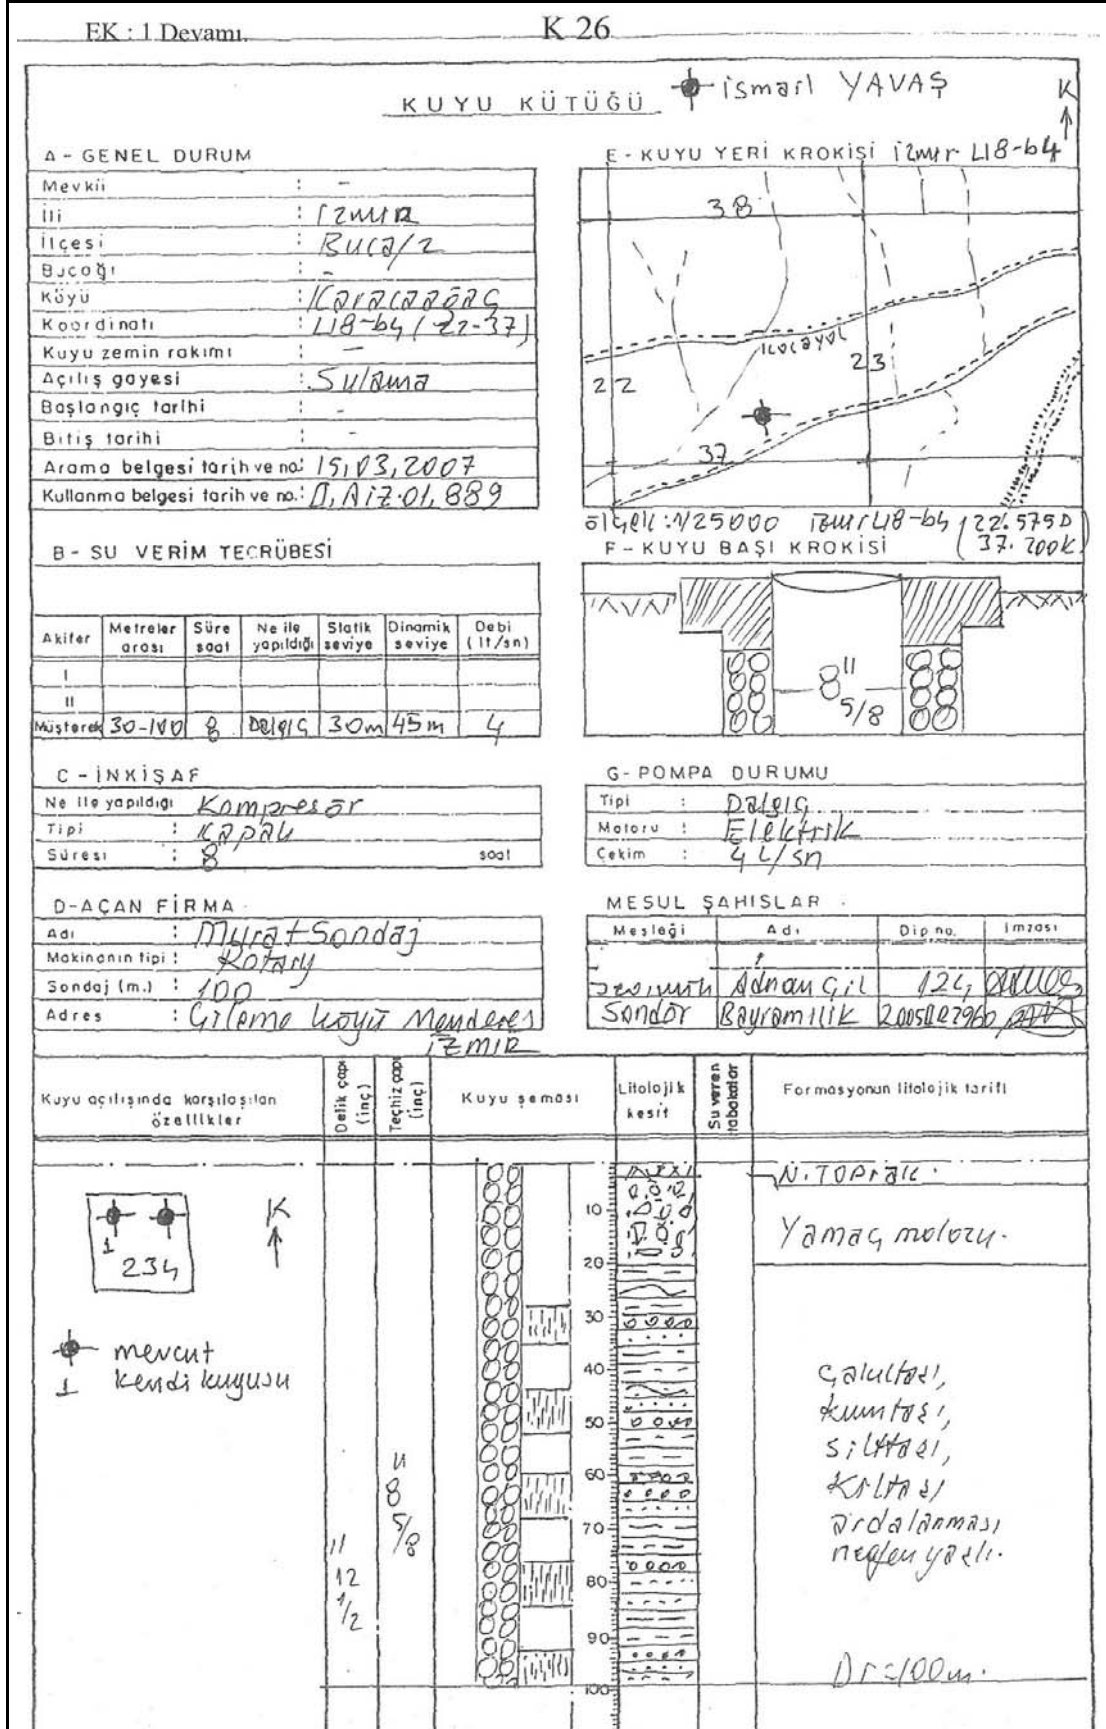 EK : 1 Devamı.
K 26
KUYU KÜTÜĞÜ
ismail YAVAŞ
K
A - GENEL DURUM
Mevkii : -
İli : İZMİR
İlçesi : Buca/2
Bucağı : -
Köyü : Karacaağaç
Koordinatı : L18-b4 (22-37)
Kuyu zemin rakımı : -
Açılış gayesi : Sulama
Başlangıç tarihi : -
Bitiş tarihi : -
Arama belgesi tarih ve no: 15,03,2007
Kullanma belgesi tarih ve no.:
E - KUYU YERİ KROKİSİ izmir L18-b4
38
Kocayol
22
23
37
ölçek : 1/25000 izmir L18-b4 (22.575D
37.200K)
B - SU VERİM TECRÜBESİ
Akifer Metreler arası Süre saat Ne ile yapıldığı Statik seviye Dinamik seviye Debi (lt/sn)
I
II
Müşterek 30-100 8 Dalgıç 30m 45m 4
F - KUYU BAŞI KROKİSİ
8" 5/8
C - İNKİŞAF
Ne ile yapıldığı Kompresör
Tipi : Kapalı
Süresi : 8 saat
G - POMPA DURUMU
Tipi : Dalgıç
Motoru : Elektrik
Çekim : 4 L/sn
D - AÇAN FİRMA
Adı : Murat Sondaj
Makinanın tipi : Rotary
Sondaj (m.) : 100
Adres : Gileme köyü Menderes
İZMİR
MESUL ŞAHISLAR
Mesleği Adı Dip no. İmzası
Adnan Gil 124
Sondör Bayram ilik
Kuyu açılışında karşılaşılan özellikler
Delik çapı (inç)
Teçhiz çapı (inç)
Kuyu şeması
Litolojik kesit
Su veren tabakalar
Formasyonun litolojik tarifi
N. TOPrak.
10
Yamaç molozu.
20
K
1
234
30
mevcut
1 kendi kuyusu
40
50
60
70
80
90
100
11
12
1/2
"
8
5/8
çakıltaşı,
kumtaşı,
silttaşı,
Kiltaşı
ardalanması
neojen yaşlı.
Dr=100m.